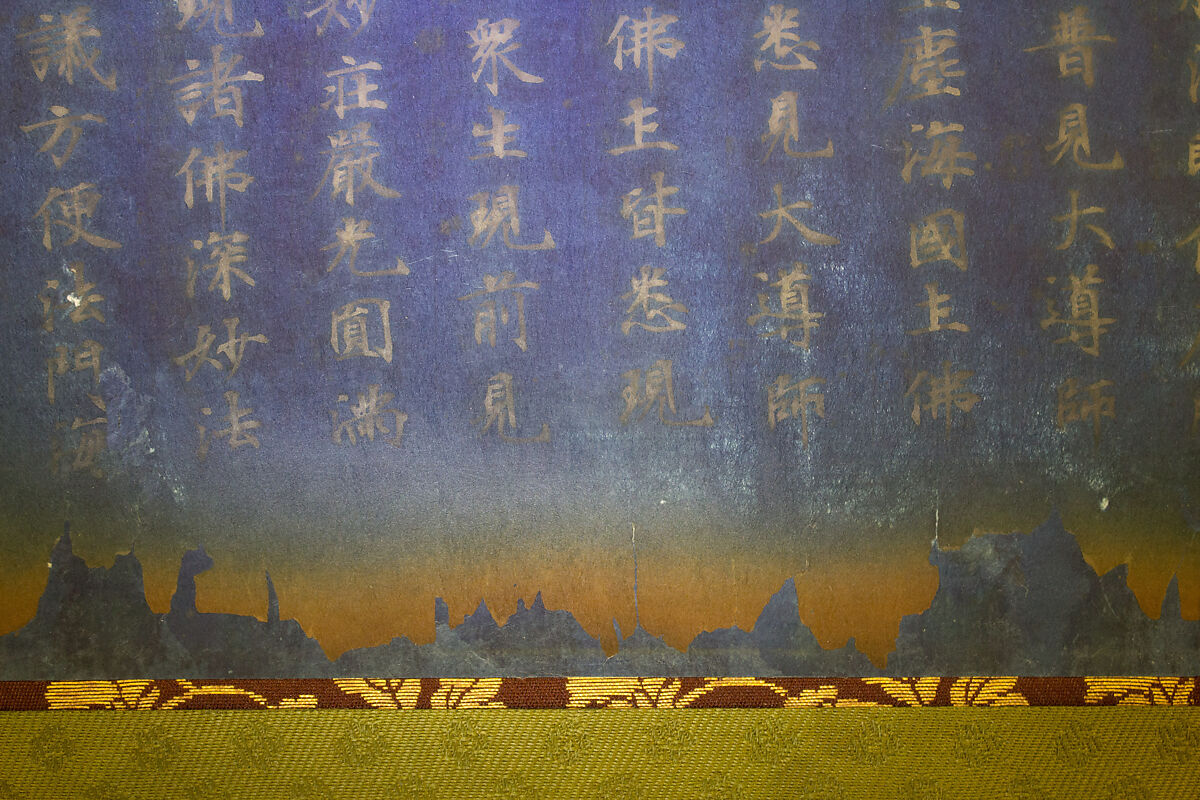 普見大導師
塵海國土佛
悉見大導師
佛土皆悉現
衆生現前見
妙庄嚴光圓滿
現諸佛深妙法
議方便法門海